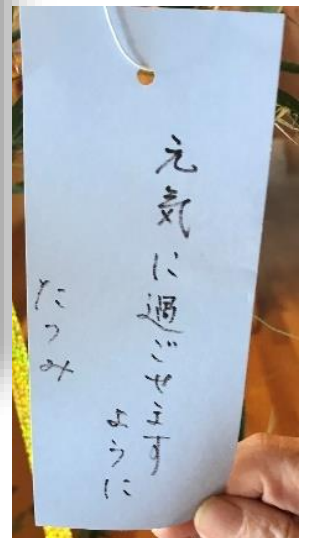 元気に過ごせます
ように
たつみ